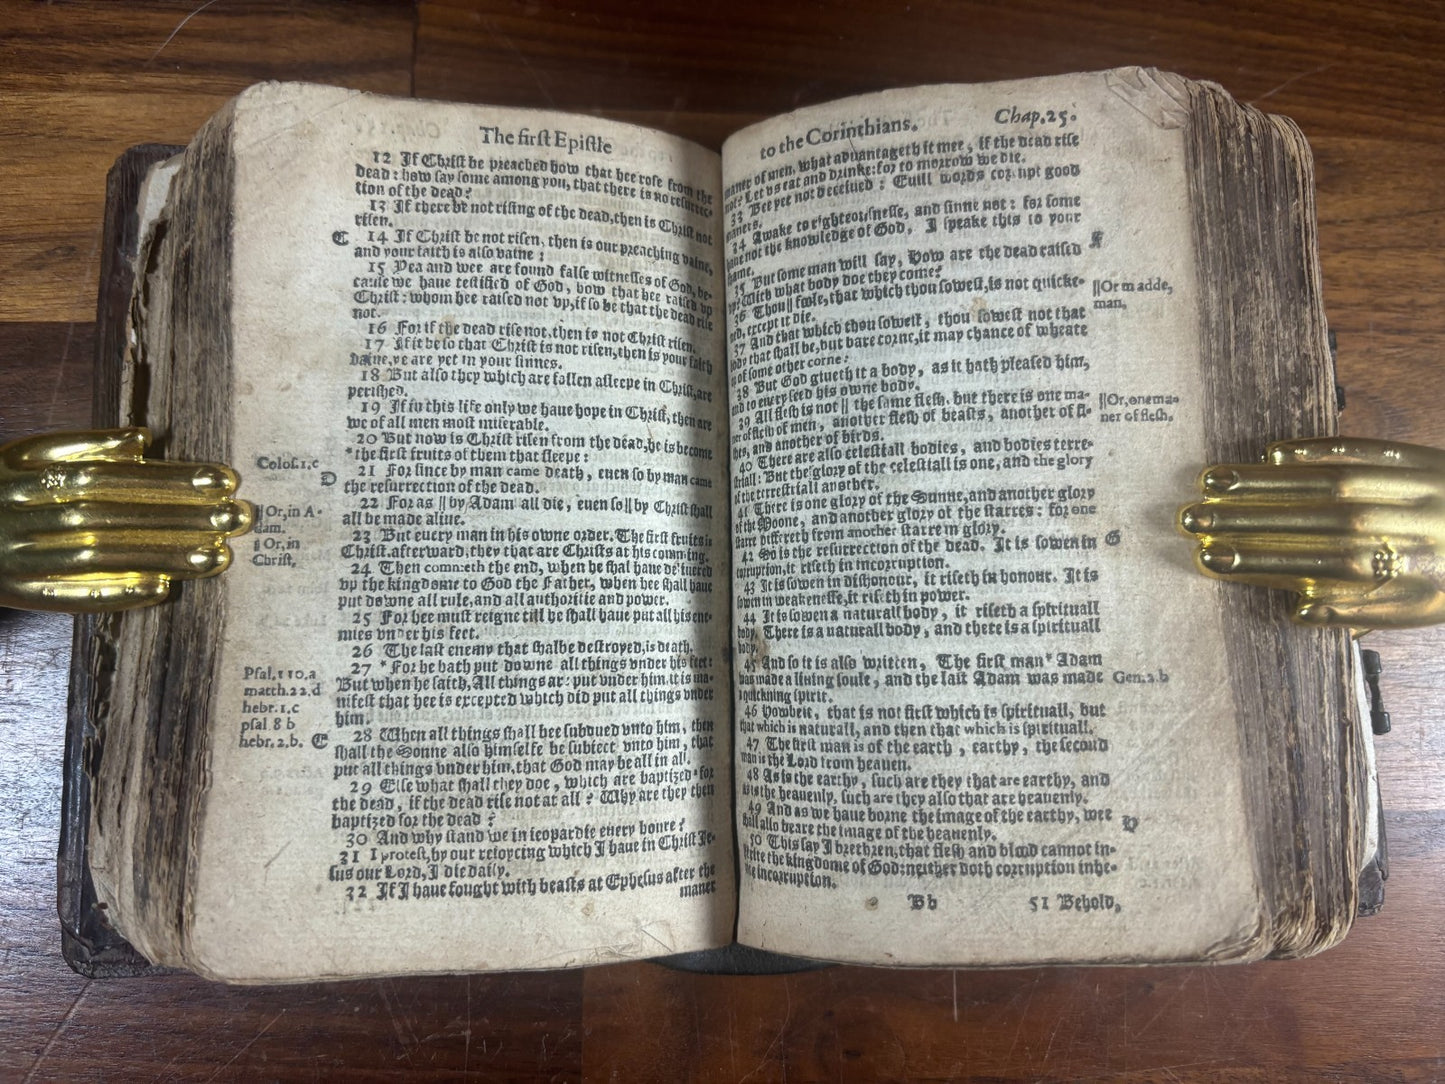 The first Epistle
12 If Christ be preached how that hee rose from the
dead: how say some among you, that there is no resurrec-
tion of the dead?
13 If there be not rising of the dead, then is Christ not
risen.
C 14 If Christ be not risen, then is our preaching vaine,
and your faith is also vaine:
15 Yea and wee are found false witnesses of God, be-
cause we haue testified of God, how that hee raised vp
Christ: whom hee raised not vp, if so be that the dead rise
not.
16 For if the dead rise not, then is not Christ risen.
17 If it be so that Christ is not risen, then is your faith
vaine, ye are yet in your sinnes.
18 But also they which are fallen asleepe in Christ, are
perished.
19 If in this life only we haue hope in Christ, then are
we of all men most miserable.
20 But now is Christ risen from the dead, he is become
* the first fruits of them that sleepe:
Colos.1.c
D
21 For since by man came death, euen so by man came
the resurrection of the dead.
22 For as || by Adam all die, euen so || by Christ shall
all be made aliue.
|| Or, in A-
dam.
|| Or, in
Christ,
23 But euery man in his owne order. The first fruits is
Christ. afterward, they that are Christs at his comming.
24 Then commeth the end, when he shal haue deliuered
vp the kingdome to God the Father, when hee shall haue
put downe all rule, and all authoritie and power.
25 For hee must reigne till he shall haue put all his ene-
mies vnder his feet.
26 The last enemy that shalbe destroyed, is death.
27 * For he hath put downe all things vnder his feet:
But when he saith, All things are put vnder him. it is ma-
nifest that hee is excepted which did put all things vnder
him.
Psal.110.a
matth.22.d
hebr.1.c
psal 8 b
hebr.2.b. E
28 When all things shall bee subdued vnto him, then
shall the Sonne also himselfe be subiect vnto him, that
put all things vnder him, that God may be all in all.
29 Else what shall they doe, which are baptized for
the dead, if the dead rise not at all? Why are they then
baptized for the dead?
30 And why stand we in ieopardie euery houre?
31 I protest, by our reioycing which I haue in Christ Je-
sus our Lord, I die daily.
32 If I haue fought with beasts at Ephesus after the
maner
to the Corinthians. Chap.25.
maner of men, what aduantageth it mee, if the dead rise
not? Let vs eat and drinke: for to morrow we die.
33 Bee yee not deceiued: Euill words corrupt good
maners.
34 Awake to righteousnesse, and sinne not: for some
haue not the knowledge of God, I speake this to your
shame.
F
35 But some man will say, How are the dead raised
vp? With what body doe they come?
36 Thou || foole, that which thou sowest, is not quicke-
ned, except it die.
|| Or madde,
man,
37 And that which thou sowest, thou sowest not that
body that shall be, but bare corne, it may chance of wheate
or of some other corne:
38 But God giueth it a body, as it hath pleased him,
and to euery seed his owne body.
39 All flesh is not || the same flesh. but there is one ma-
ner of flesh of men, another flesh of beasts, another of fi-
shes, and another of birds.
|| Or, one ma-
ner of flesh,
40 There are also celestiall bodies, and bodies terre-
striall: But the glory of the celestiall is one, and the glory
of the terrestriall another.
41 There is one glory of the Sunne, and another glory
of the Moone, and another glory of the starres: for one
starre differeth from another starre in glory.
42 So is the resurrection of the dead. It is sowen in G
corruption, it riseth in incorruption.
43 It is sowen in dishonour, it riseth in honour. It is
sowen in weakenesse, it riseth in power.
44 It is sowen a naturall body, it riseth a spirituall
body. There is a naturall body, and there is a spirituall
body.
45 And so it is also written, The first man * Adam
was made a liuing soule, and the last Adam was made
a quickning spirit.
Gen.2.b
46 Howbeit, that is not first which is spirituall, but
that which is naturall, and then that which is spirituall.
47 The first man is of the earth, earthy, the second
man is the Lord from heauen.
48 As is the earthy, such are they that are earthy, and
as is the heauenly, such are they also that are heauenly.
49 And as we haue borne the image of the earthy, wee
shall also beare the image of the heauenly.
H
50 This say I brethren, that flesh and blood cannot in-
herite the kingdome of God: neither doth corruption inhe-
rite incorruption.
Bb 51 Behold,